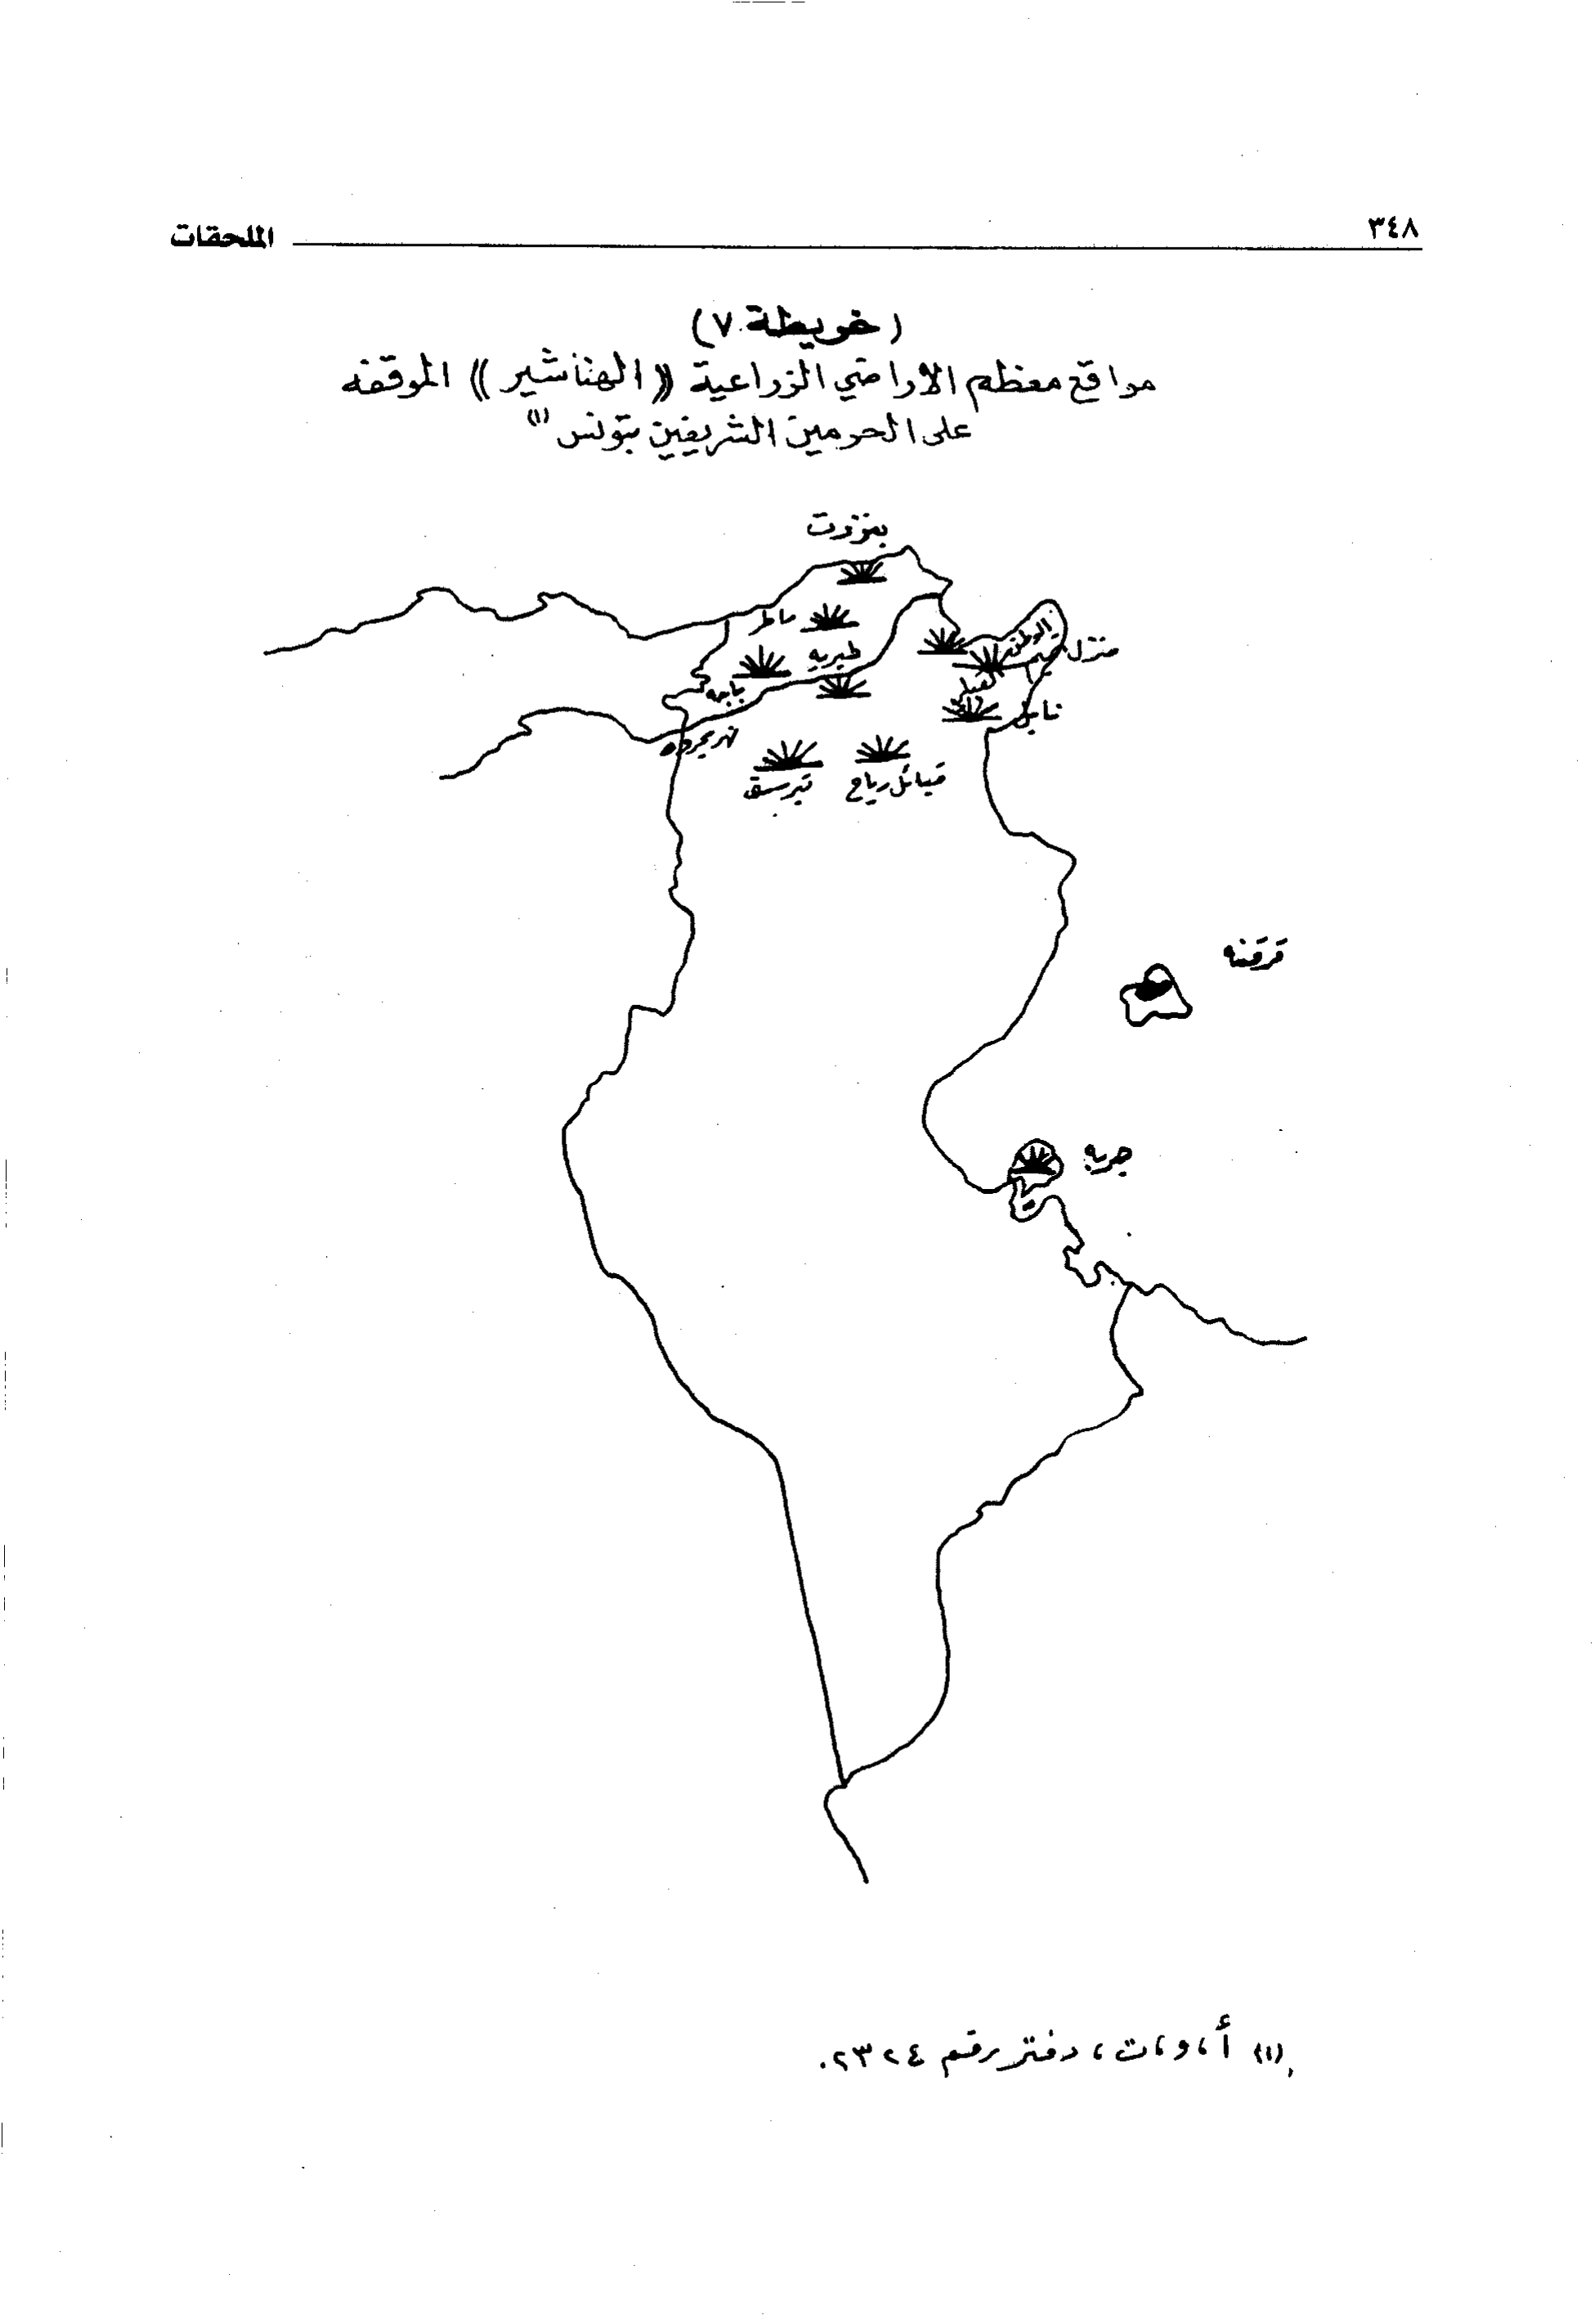 ٣٤٨
الملحقات
(خريطة ٧)
مواقع معظم الاراضي الزراعية ((الهناشير)) الموقفه
على الحرمين الشريفين بتونس (١)
بنزرت
ماطر
طبربه
باجه
نهر مجرده
تبرسق
قبائل رياح
الوطن
القبلي
منزل
نابل
قرقنه
جربه
(١) أ، و، ت، دفتر رقم ٢٣٢٤.